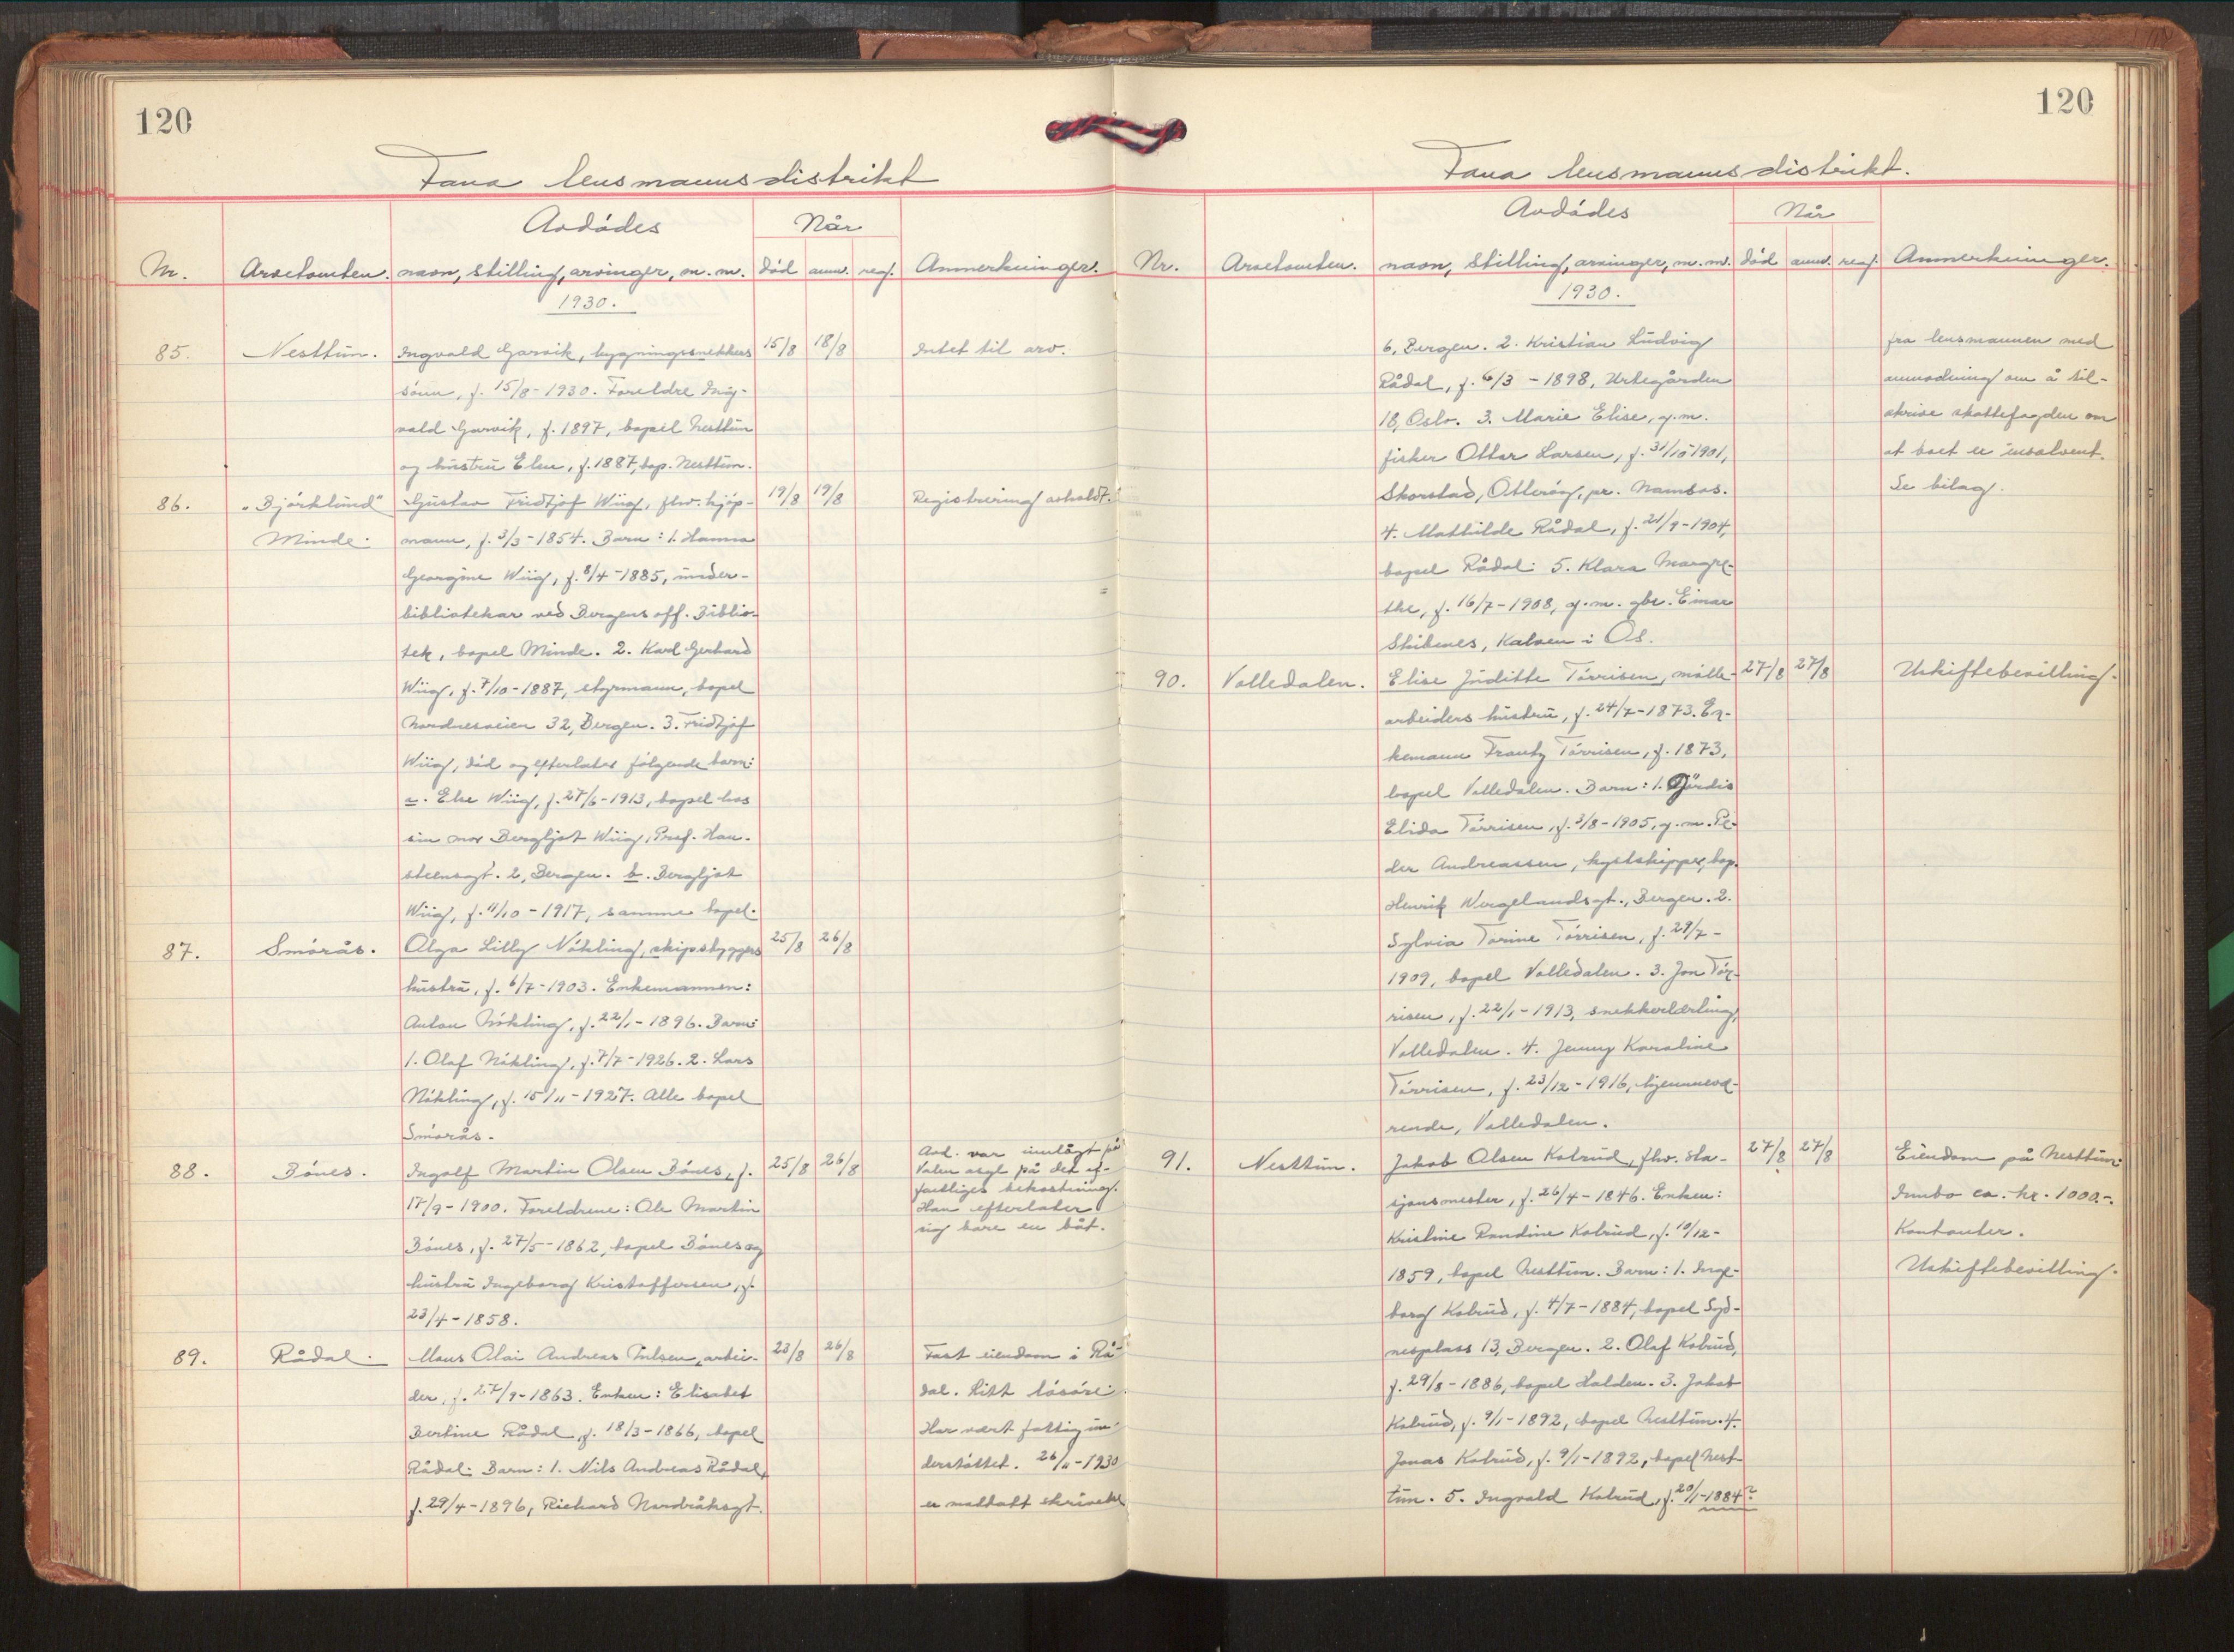 120
Fana lensmannsdistrikt
Avdødes
Når
Nr. Arvetomten. navn, stilling, arvinger, m. m. død anm. reg. Anmerkninger.
1930.
85. Nesttun. Ingvald Garvik, bygningssnekkers 15/8 18/8 Intet til arv.
sønn, f. 15/8-1930. Foreldre Ing-
vald Garvik, f. 1897, bopel Nesttun
og hustru Elen, f. 1887, bop. Nesttun.
86. "Bjørklund" Gustav Fridtjof Wiig, fhv. kjøp- 19/8 19/8 Registrering avholdt.
Minde. mann, f. 3/3-1854. Barn: 1. Hanna
Georgine Wiig, f. 8/4-1885, under-
bibliotekar ved Bergens off. Biblio-
tek, bopel Minde. 2. Karl Gerhard
Wiig, f. 7/10-1887, styrmann, bopel
Nordnesveien 32, Bergen. 3. Fridtjof
Wiig, død og efterlater følgende barn:
a. Else Wiig, f. 27/6-1913, bopel hos
sin mor Bergljot Wiig, Prof. Han-
steensgt. 2, Bergen. b. Bergljot
Wiig, f. 11/10-1917, samme bopel.
87. Smørås. Olga Lilly Nökling, skipsbyggers 25/8 26/8
hustru, f. 6/7-1903. Enkemannen:
Anton Nökling, f. 22/1-1896. Barn:
1. Olaf Nökling, f. 7/7-1926. 2. Lars
Nökling, f. 15/11-1927. Alle bopel
Smørås.
88. Bönes. Ingolf Martin Olsen Bönes, f. 25/8 26/8 Avd. var innlagt på
Valen asyl på det of-
17/9-1900. Foreldrene: Ole Martin fentliges bekostning.
Han efterlater
Bönes, f. 27/5-1862, bopel Bönes og sig bare en båt.
hustru Ingeborg Kristoffersen, f.
23/4-1858.
89. Rådal. Mons Olai Andreas Nilsen, arbei- 23/8 26/8 Fast eiendom i Rå-
der, f. 27/9-1863. Enken: Elisabet dal. Litt løsøre.
Bertine Rådal, f. 18/3-1866, bopel Har vært fattigun-
Rådal. Barn: 1. Nils Andreas Rådal, derstøttet. 26/11-1930
f. 29/4-1896, Richard Nordråksgt. er mottatt skrivelse
120
Fana lensmannsdistrikt.
Avdødes
Når
Nr. Arvetomten. navn, stilling, arvinger, m. m. død anm. reg. Anmerkninger.
1930.
6, Bergen. 2. Kristian Ludvig fra lensmannen med
Rådal, f. 6/3-1898, Urtegården anmodning om å til-
18, Oslo. 3. Marie Elise, g. m. skrive skattefogden om
fisker Ottar Larsen, f. 31/10-1901, at boet er insolvent.
Skorstad, Otterøy, pr. Namsos. Se bilag.
4. Mathilde Rådal, f. 21/9-1904,
bopel Rådal. 5. Klara Margre-
the, f. 16/7-1908, g. m. gbr. Einar
Skibenes, Kalven i Os.
90. Valledalen. Elise Juditte Tørrisen, mølle- 27/8 27/8 Uskiftebevilling.
arbeiders hustru, f. 24/7-1873. En-
kemann Frantz Tørrisen, f. 1873,
bopel Valledalen. Barn: 1. Gjørdis
Elida Tørrisen, f. 3/8-1905, g. m. Pe-
der Andreassen, kystskipper, bop.
Henrik Wergelandsgt., Bergen. 2.
Sylvia Torine Tørrisen, f. 29/7-
1909, bopel Valledalen. 3. Jon Tør-
risen, f. 22/1-1913, snekkerlærling,
Valledalen. 4. Jenny Karoline
Tørrisen, f. 23/12-1916, hjemmevæ-
rende, Valledalen.
91. Nesttun. Jakob Olsen Kolrud, fhv. sta- 27/8 27/8 Eiendom på Nesttun.
sjonsmester, f. 26/4-1846. Enken: Innbo ca. kr. 1000.-.
Kristine Randine Kolrud, f. 10/12- Kontanter.
1859, bopel Nesttun. Barn: 1. Inge- Uskiftebevilling.
borg Kolrud, f. 4/7-1884, bopel Syd-
nesplass 13, Bergen. 2. Olaf Kolrud,
f. 29/8-1886, bopel Halden. 3. Jakob
Kolrud, f. 9/1-1892, bopel Nesttun. 4.
Jonas Kolrud, f. 9/1-1892, bopel Nest-
tun. 5. Ingvald Kolrud, f. 20/1-1884?